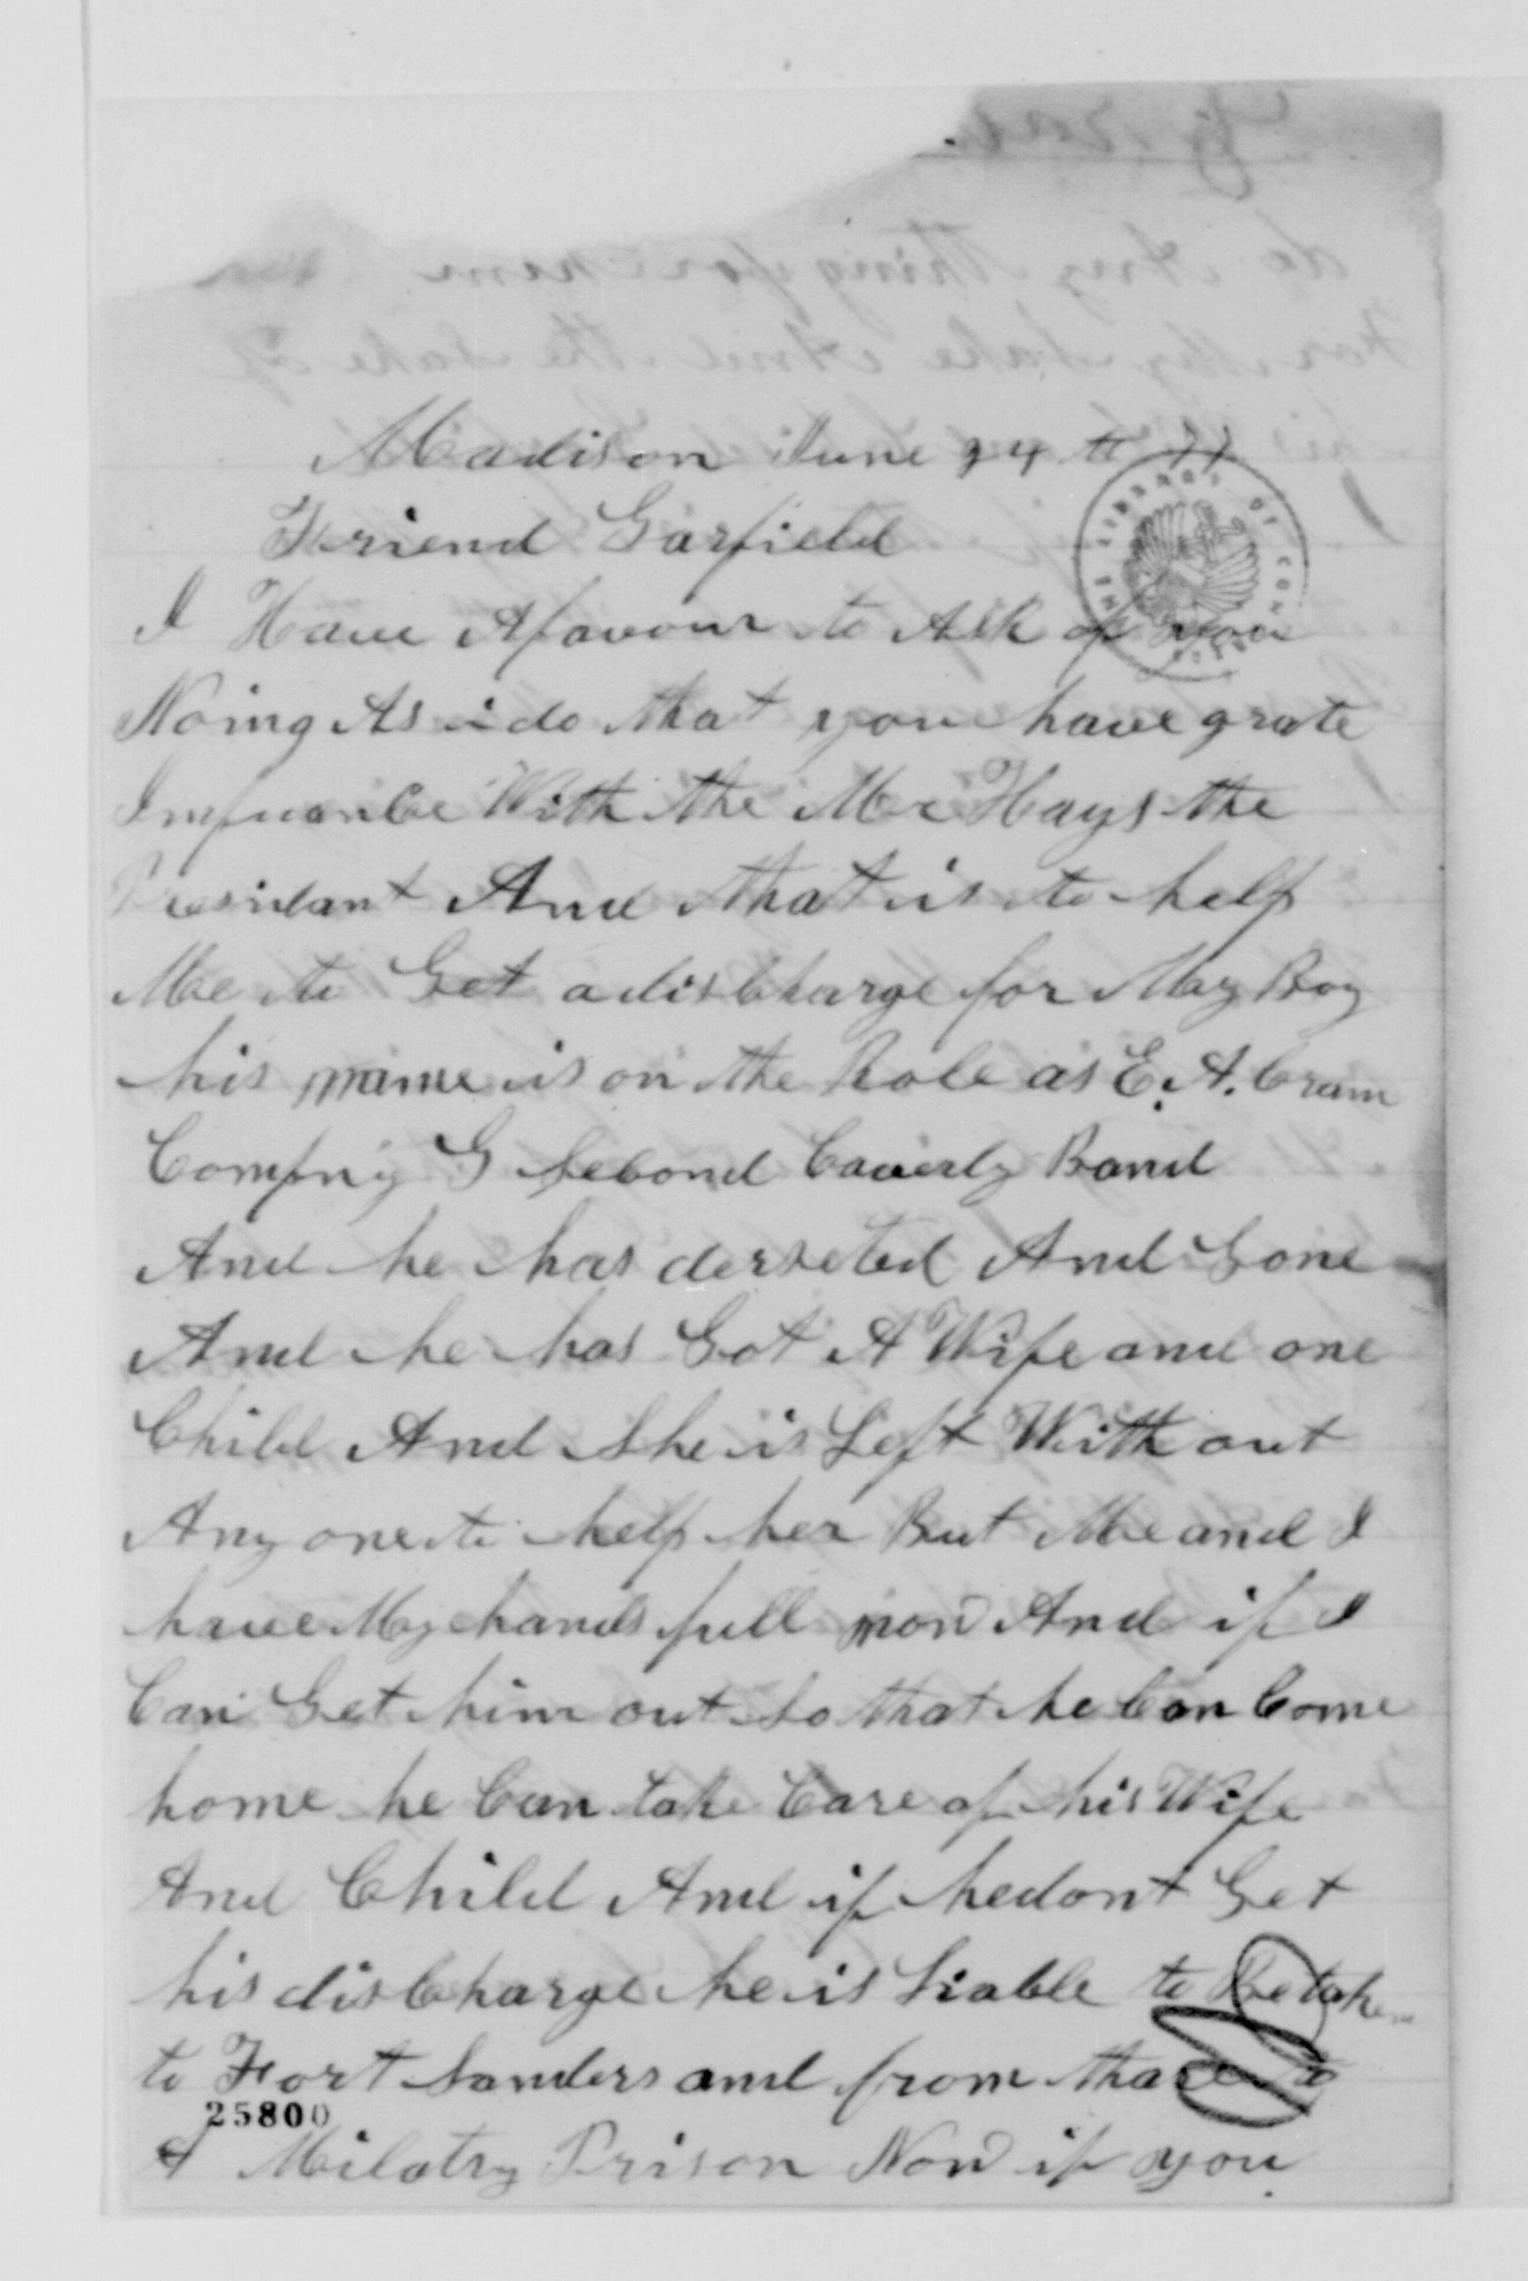 Madison June 24th 77
Friend Garfield
I Have A favour to Ask of you
Noing As i do that you have grate
Infuance With the Mr Hays the
Presidant And that is to help
Me to Get a discharge for My Boy
his name is on the Role as E. A. Cram
Compny G Second Caverly Band
And he has derseted And Gone
And he has Got A Wife and one
Child And She is Left With out
Any one to help her But Me and I
have My hands full now And if I
Can Get him out So that he Can Come
home he Can take Care of his Wife
And Child And if he dont Get
his discharge he is liable to Be taken
to Fort Sanders and from thare to
25800
A Milatry Prison Now if you